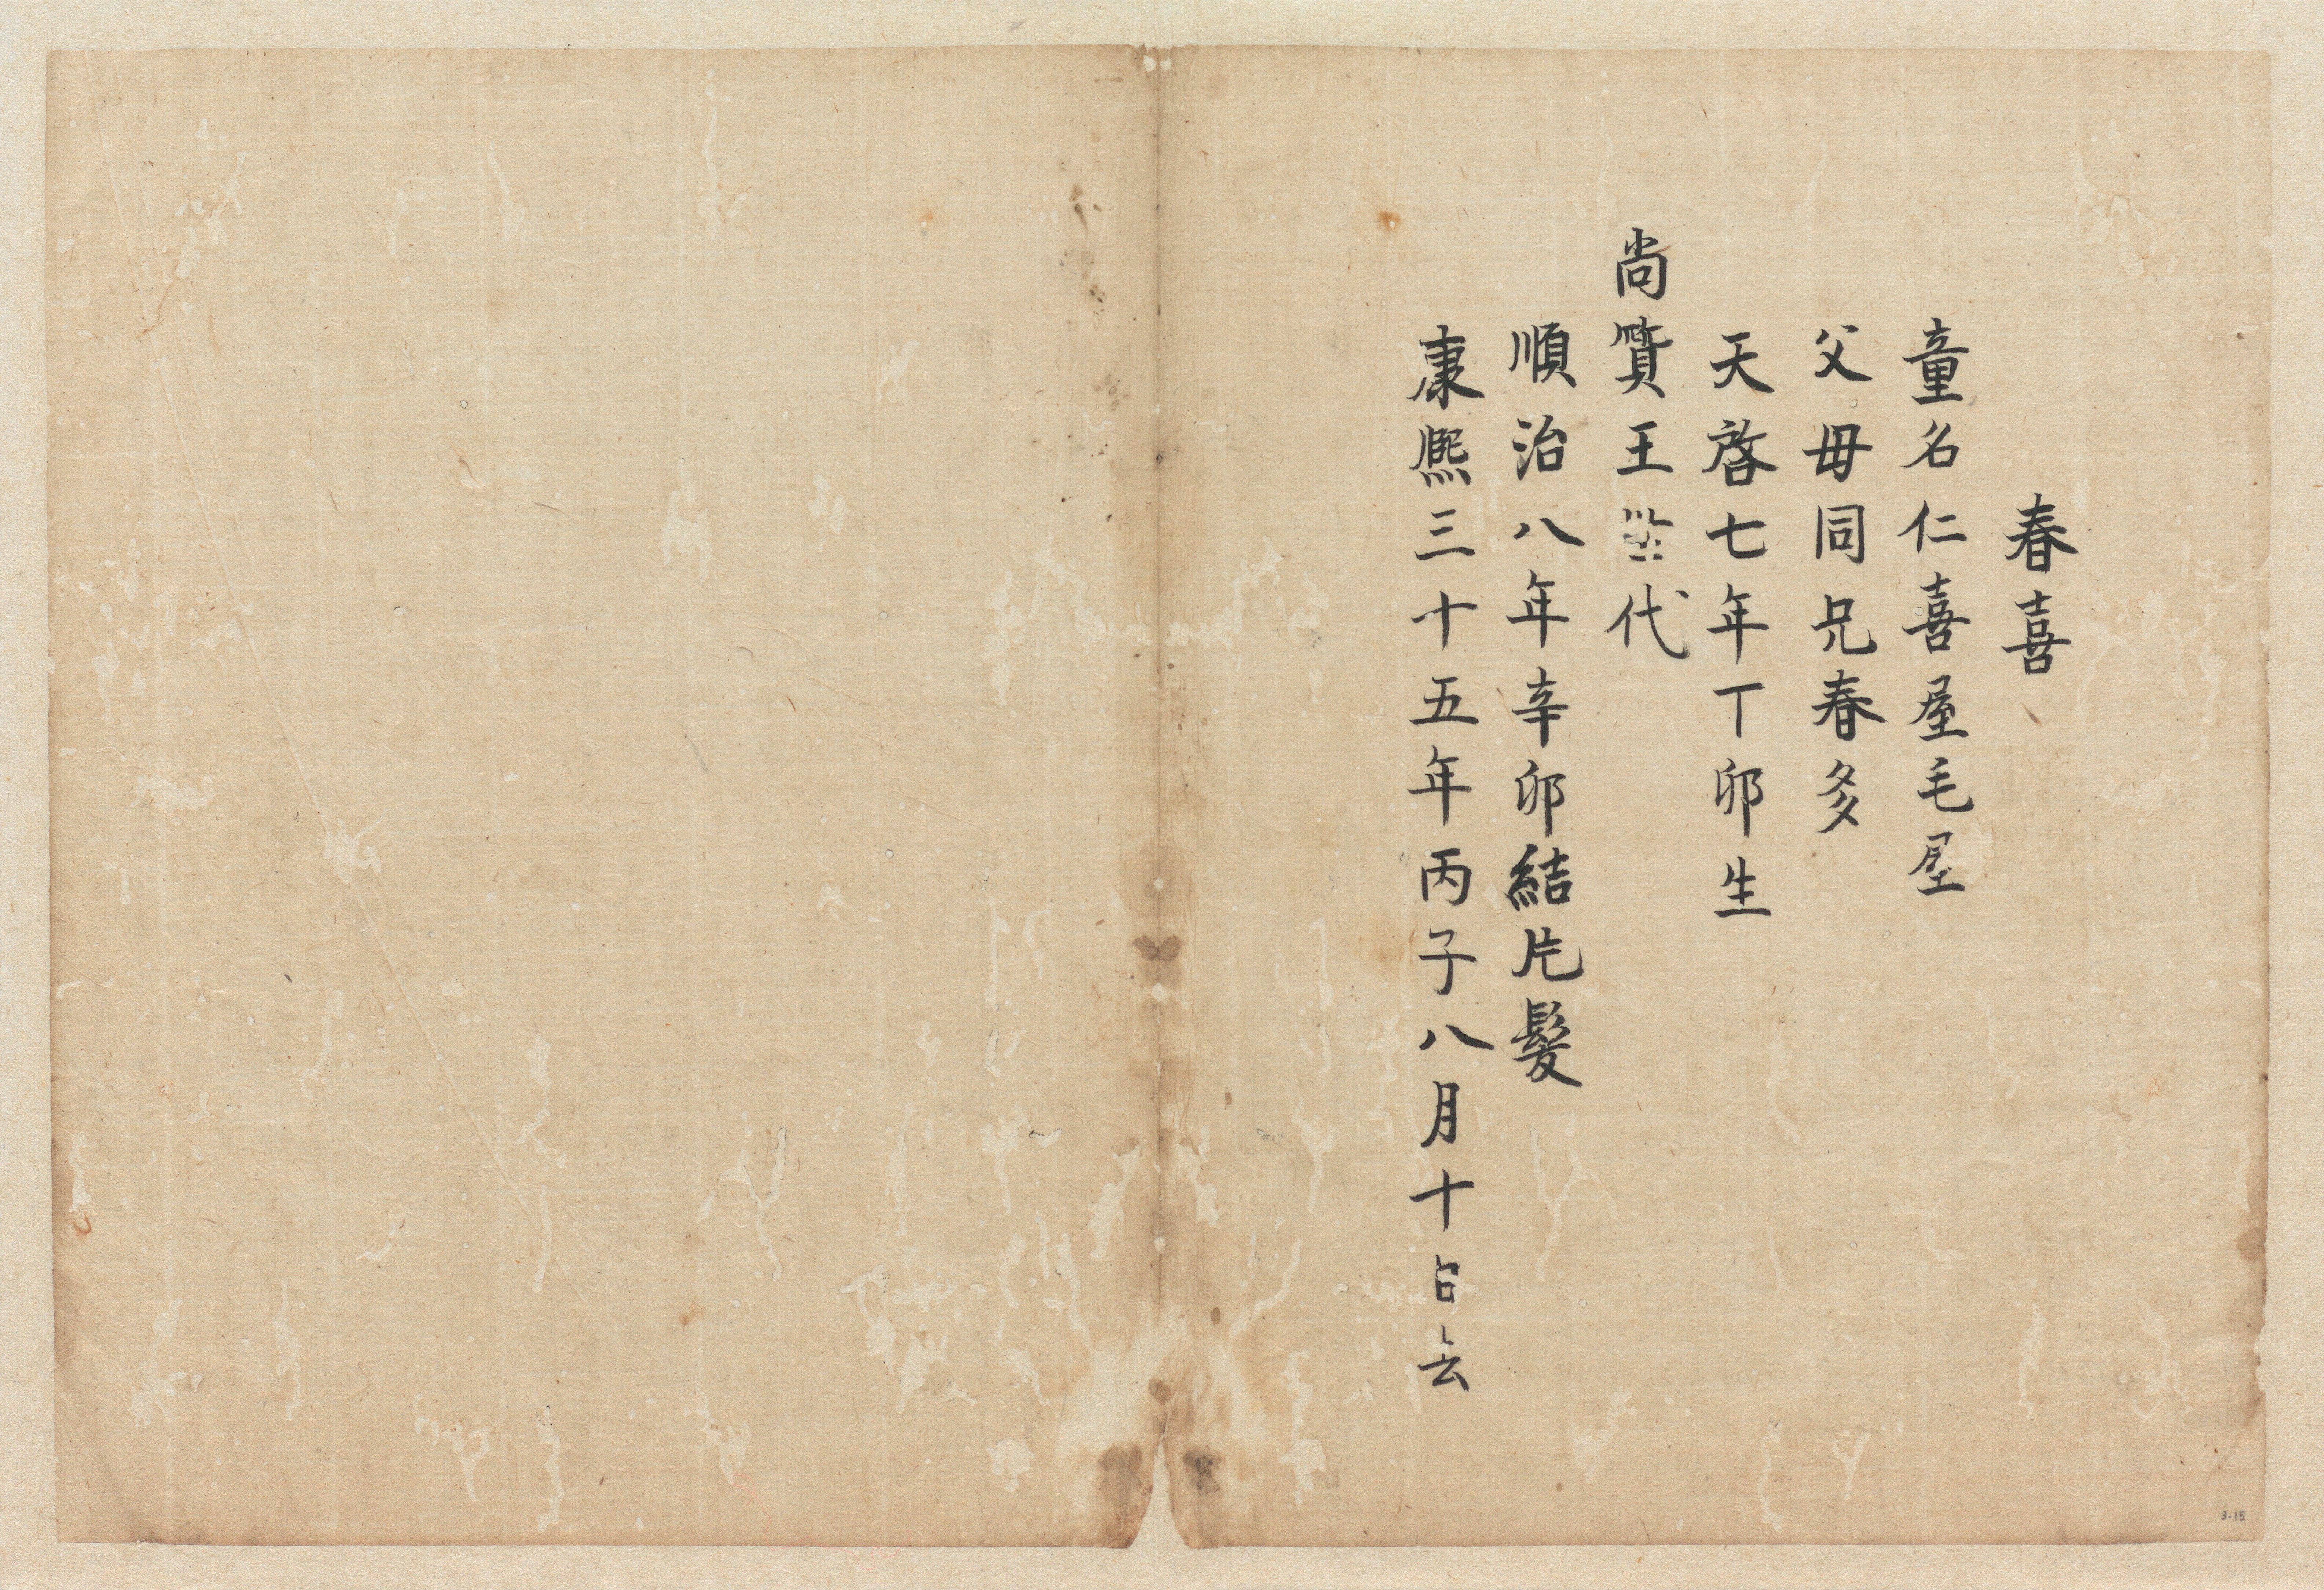 春喜
童名仁喜屋毛屋
父毋同兄春多
天啓七年丁卯生
尚質王代
順治八年辛卯結片髮
康熙三十五年丙子八月十日去
3-15